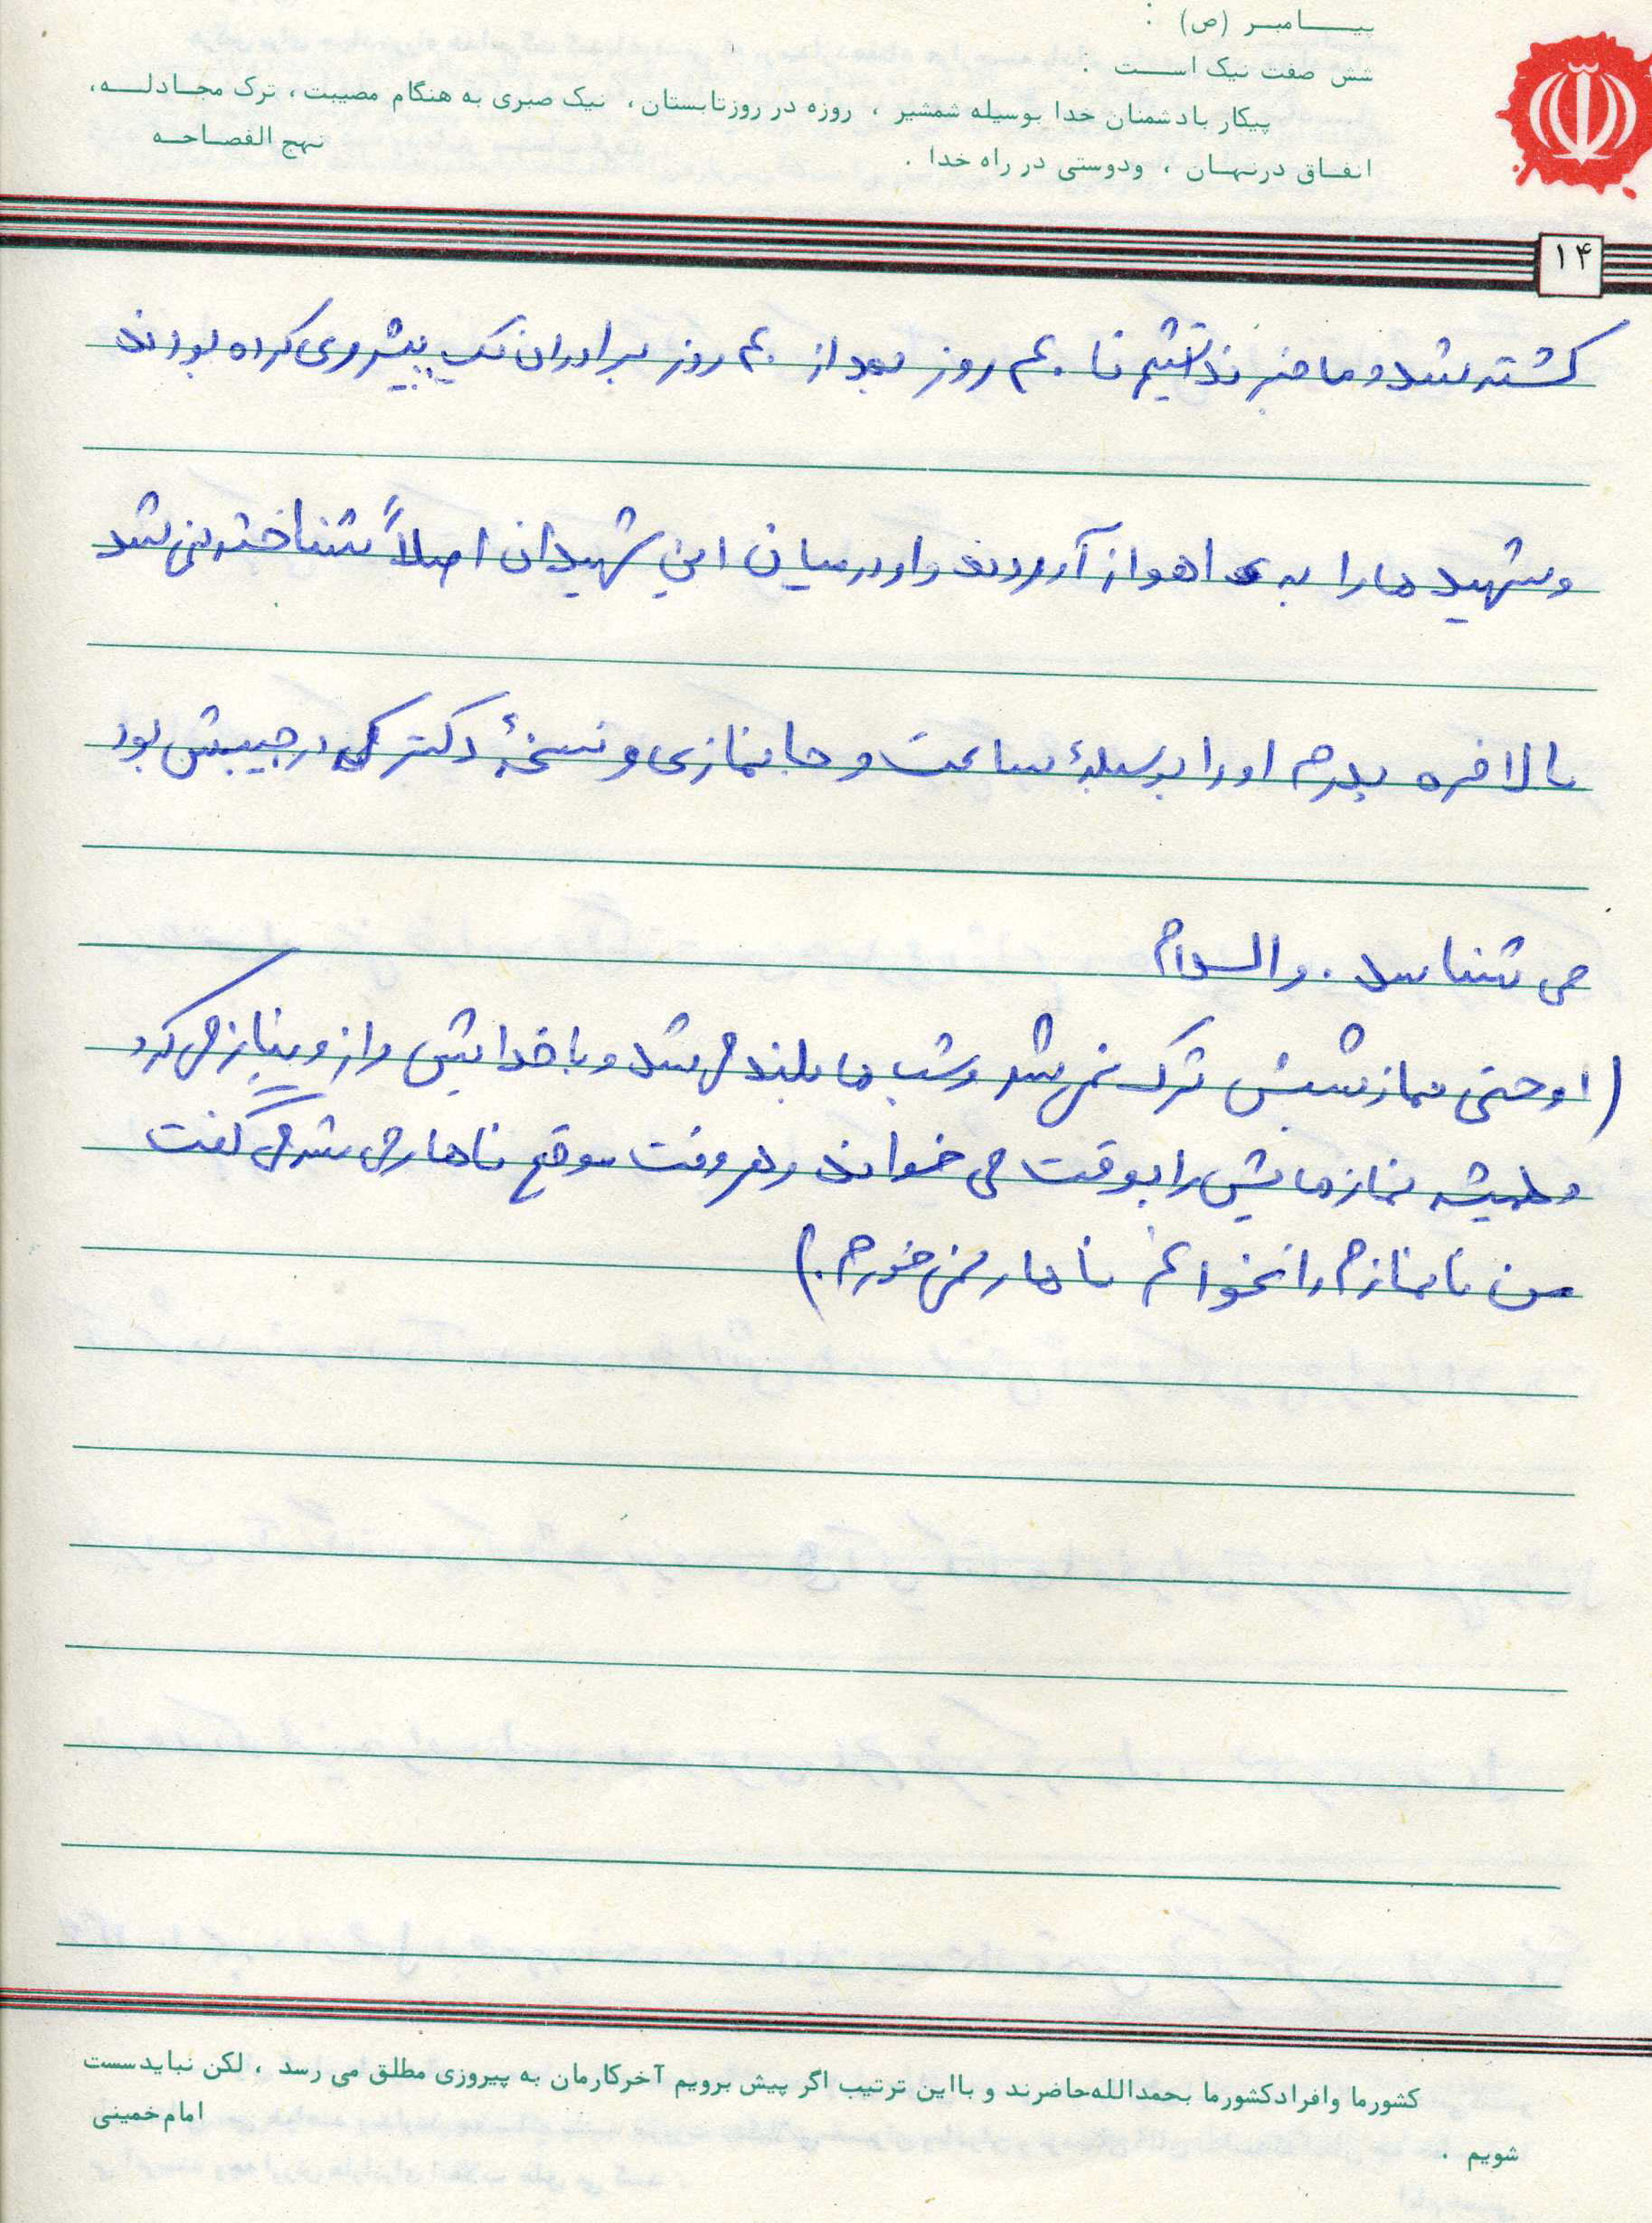 پیـــامبــر (ص) :
شش صفت نیک اســـت :
پیکار با دشمنان خدا بوسیله شمشیر ، روزه در روز تابستان ، نیک صبری به هنگام مصیبت ، ترک مجـادلـــه،
انفــاق در نهــان ، و دوستی در راه خدا .
نهج الفصـاحــه
۱۴
کشته شد و ما خبر نداشتیم تا ۴۰ روز بعد از ۴۰ روز برادران تک پیشروی کرده بودند
و شهید ها را به اهواز آوردند و او در میان این شهیدان اصلاً شناخته نمی شد
بالاخره پدرم او را بوسیلهٔ ساعت و جانمازی و نسخهٔ دکتر که در جیبش بود
می شناسد . والسلام
( او حتی نماز شبش ترک نمی شد و شب ها بلند می شد و با خدایش راز و نیاز می کرد
و همیشه نمازهایش را بوقت می خواند و هر وقت موقع ناهار می شد می گفت
من تا نمازم را نخوانم ناهار نمی خورم .)
کشور ما و افراد کشور ما بحمدالله حاضرند و با این ترتیب اگر پیش برویم آخر کارمان به پیروزی مطلق می رسد ، لکن نباید سست
شویم .
امام خمینی